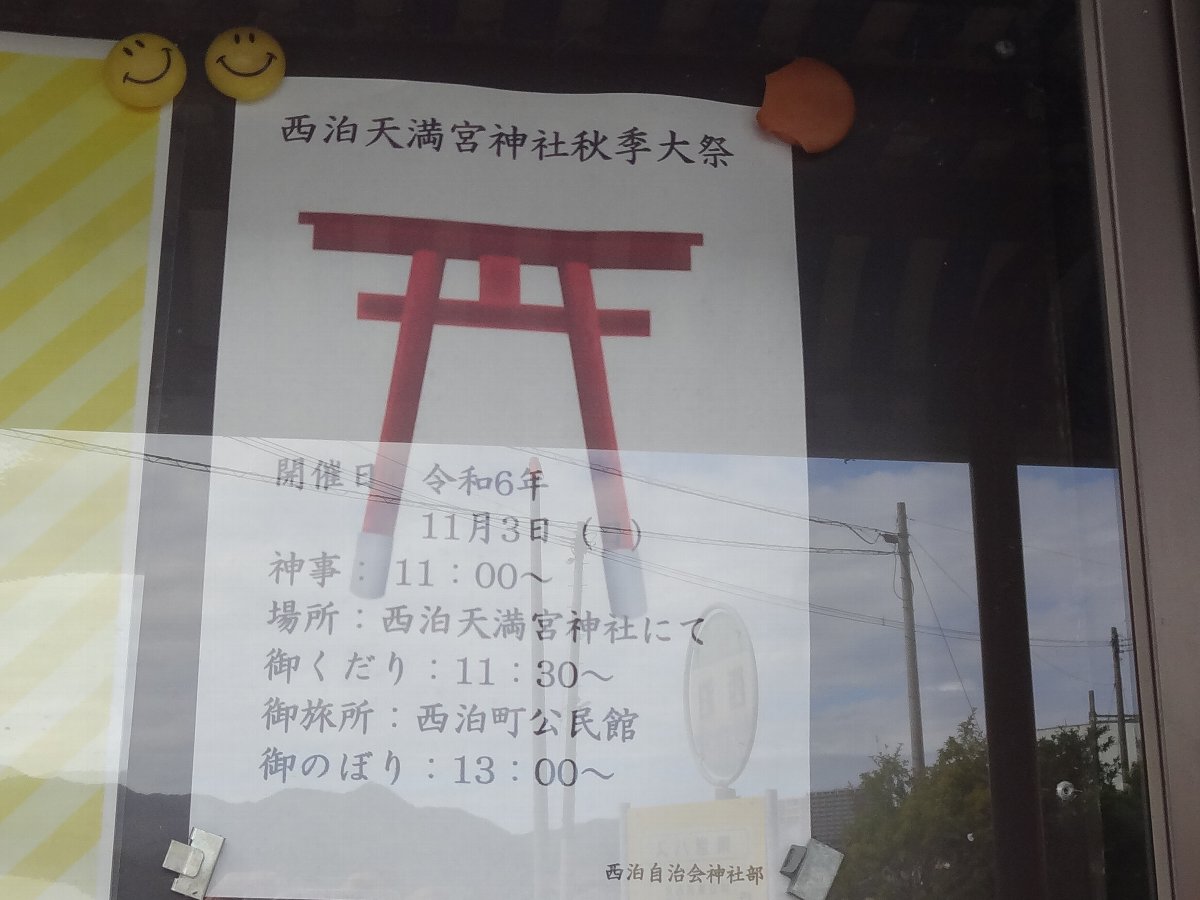 西泊天満宮神社秋季大祭
開催日　令和6年
11月3日
神事：11：00～
場所：西泊天満宮神社にて
御くだり：11：30～
御旅所：西泊町公民館
御のぼり：13：00～
西泊自治会神社部